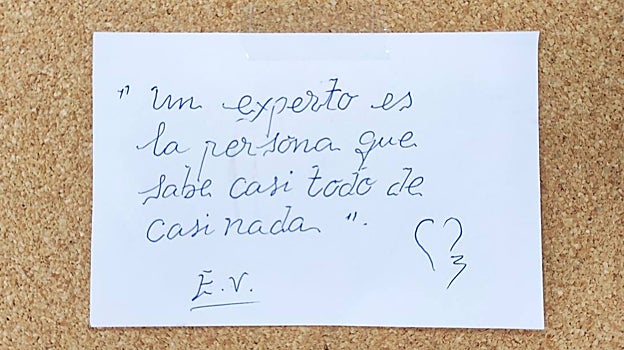 " Un experto es
la persona que
sabe casi todo de
casi nada ".
E.V.